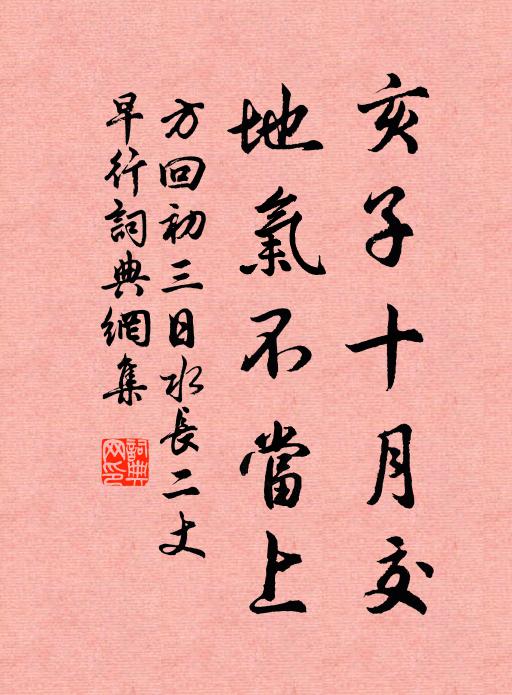 亥子十月交
地氣不當上
方回初三日水長二丈
早行詞典網集
詞典
网印